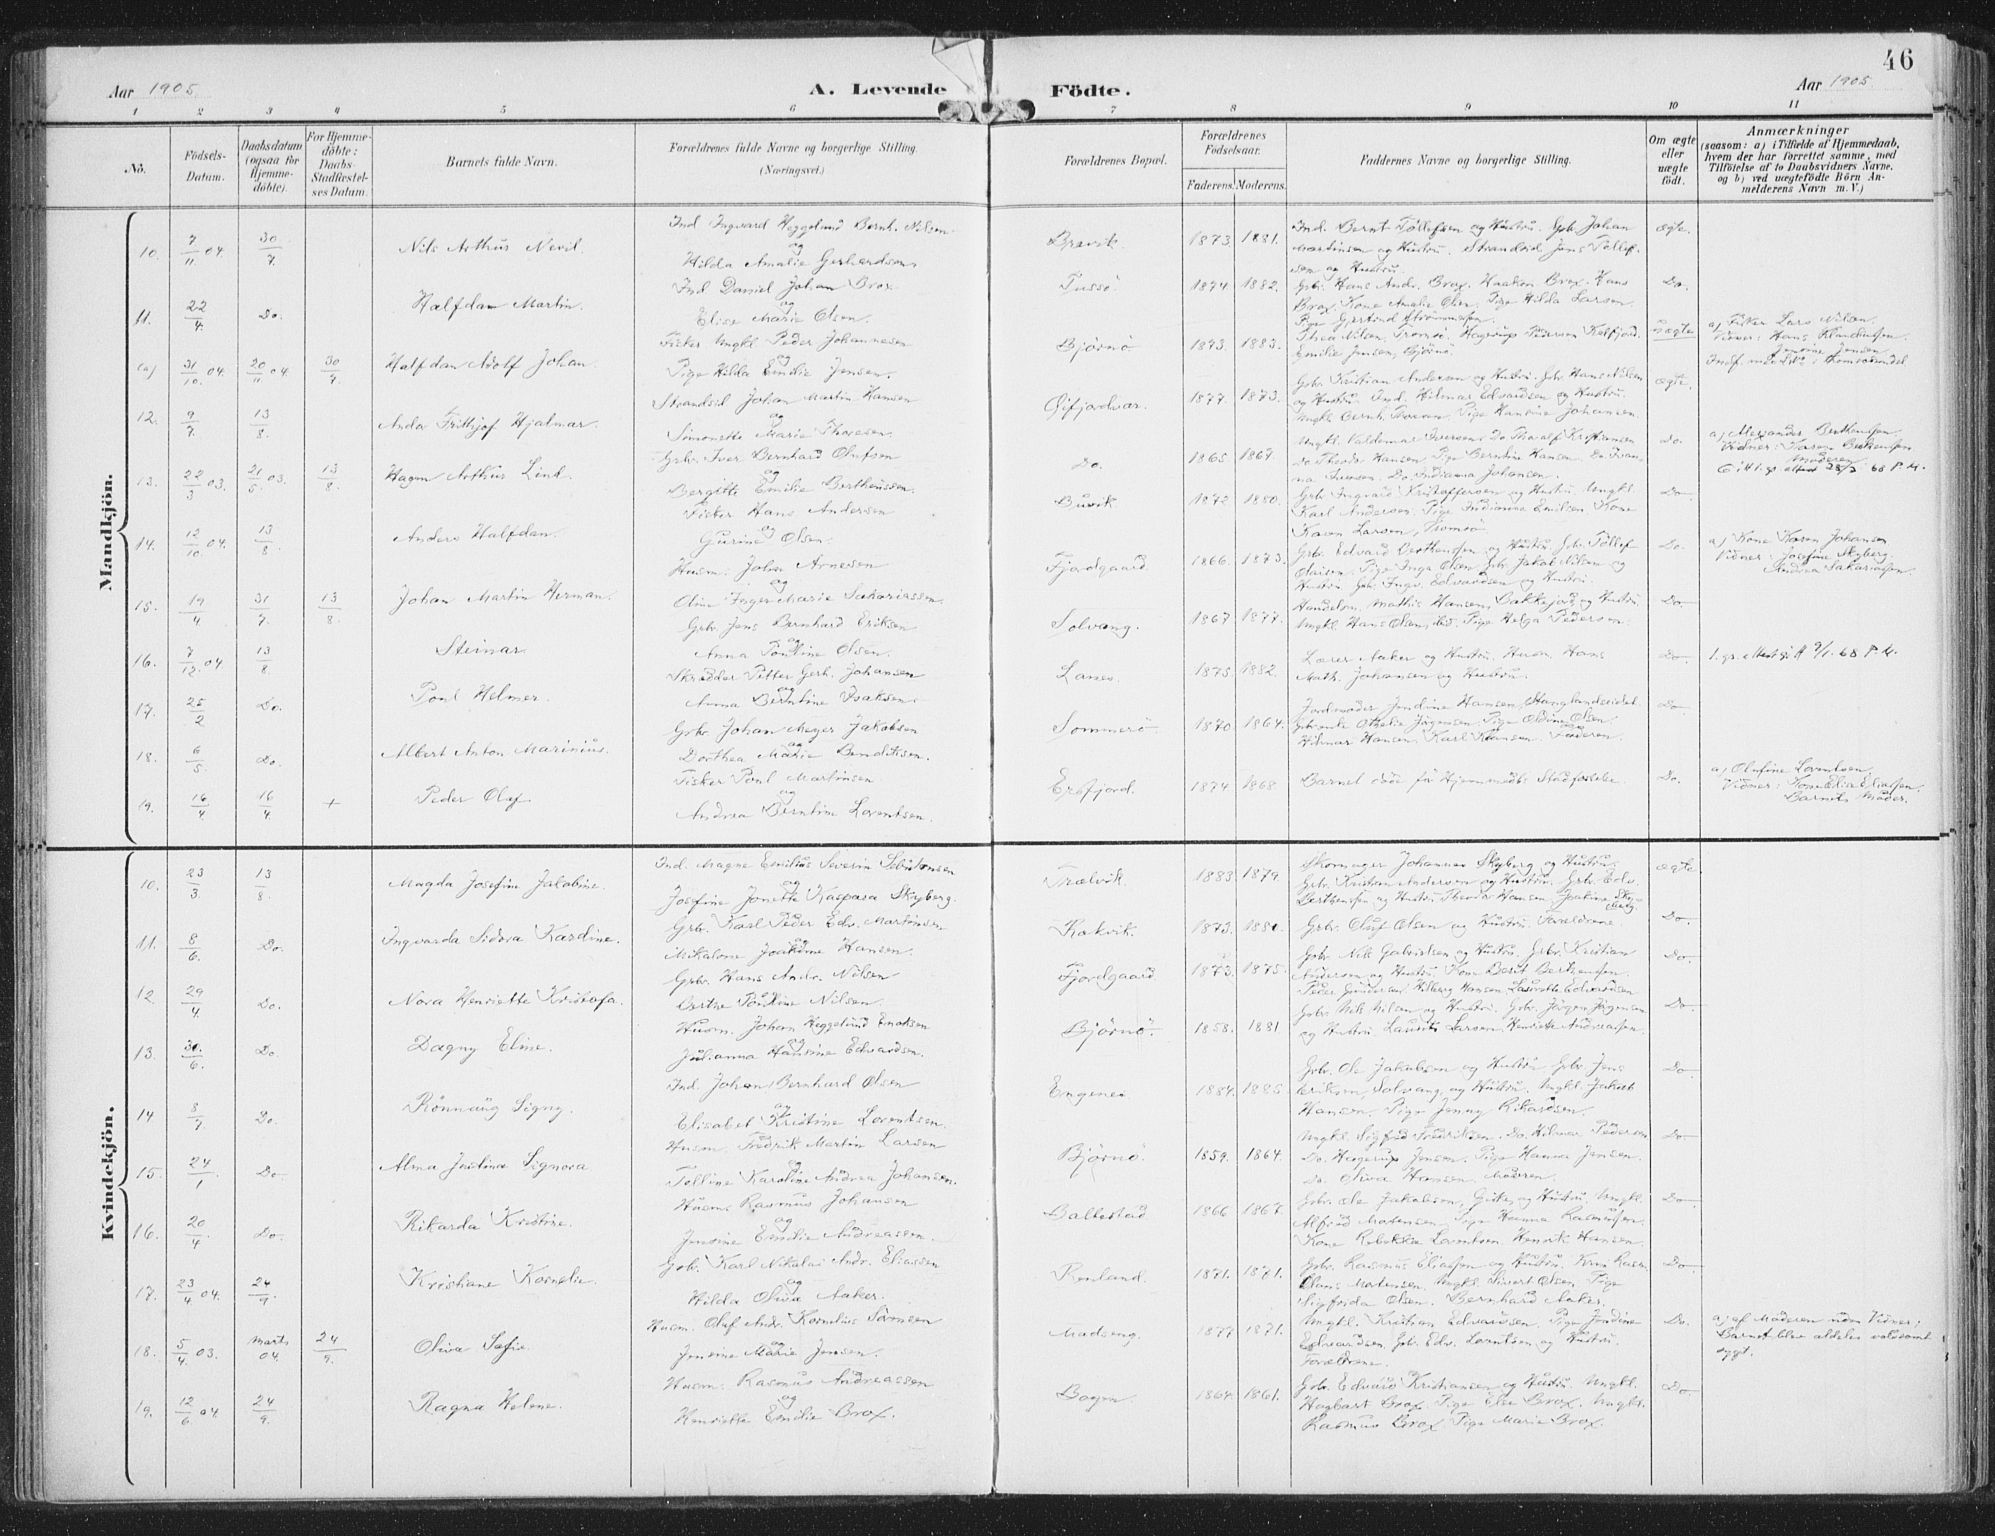 46
Aar 1905
A. Levende Födte.
Aar 1905
1 2 3 4 5 6 7 8 9 10 11
No.
Födsels-Datum.
Daabsdatum (ogsaa for Hjemme-döbte).
For Hjemme-döbte: Daabs-Stadfæstel-ses Datum.
Barnets fulde Navn.
Forældrenes fulde Navne og borgerlige Stilling.
(Næringsvei.)
Forældrenes Bopæl.
Forældrenes Födselsaar.
Faderens. Moderens.
Faddernes Navne og borgerlige Stilling.
Om ægte eller uægte födt.
Anmærkninger
(saasom: a) i Tilfælde af Hjemmedaab, hvem der har forrettet samme, med Tilföielse af to Daabsvidners Navne, og b) ved uægtefödte Börn An-melderens Navn m. V.)
Mandkjön.
10. 7/11 04. 30/7. Nils Arthur Nevil.
Ind Ingvard Heggelund Bernh. Nilsen
og
Hilda Amalie Gerhardsen
Bravik. 1873 1881.
Ind. Bernt Tollefsen og Hustru. Gbr. Johan
Martinsen og Hustru. Strandsid Jens Tollef-
sen og Hustru.
ægte.
11. 22/4. Do. Halfdan Martin.
Ind Daniel Johan Brox
og
Elise Marie Olsen.
Tussö. 1874 1882.
Gbr. Hans Andr. Brox. Haakon Brox. Hans
Brox. Kone Amalie Olsen. Pige Hilda Larsen.
Do.
(a) 31/10. 04. 20/11 04. 30/7. Halfdan Adolf Johan.
Fisker Ungkl Peder Johannesen
og
Pige Hilda Emilie Jensen.
Björnö 1873. 1883.
Thea Nilsen, Tromsö. Hagerup Pedersen Kalfjord.
Emilie Jensen, Björnö.
uægte
a) Fisker Lars Nilsen
Vidner: Hans Klaudiussen
Jensine Jensen
12. 9/7. 13/8. Anda Frithjof Hjalmar.
Strandsid Johan Martin Hansen
og
Simonette Marie Thoresen.
Öifjordvær. 1877. 1873.
Gbr. Kristian Andersen og Hustru. Gbr Hans Nilsen
og Hustru. Ind. Hilmar Edvardsen og Hustru.
Ungkl Bernt Thoresen. Pige Hansine Johansen.
ægte.
13. 22/3 03. 21/5. 03. 13/8. Hagen Arthur Lind.
Gbr. Iver Bernhard Olufsen
og
Bergitte Emilie Bertheussen.
Do. 1865 1867.
Ungkl. Valdemar Iversen. Do Tharalf Kristiansen
Do Theodor Hansen Pige Berntine Hansen. Do Ivan-
na Iversen. Do Indianna Johansen.
Do.
a) Alexander Bertheussen
Vidner: Karen Bertheussen
Moderen
14. 12/10. 04. 13/8. Anders Halfdan.
Fisker Hans Andersen
og
Gurine Olsen.
Buvik. 1872 1880.
Gbr Ingvard Kristoffersen og Hustru. Ungkl.
Karl Andersen. Pige Indianna Emilsen Kone
Karen Larsen, Tromsö
Do
15. 19/4 31/7. 13/8. Johan Martin Herman.
Husm. Johan Arnesen
og
Oline Inger Marie Sakariassen.
Fjordgaard 1866. 1873.
Gbr. Edvard Berthenssen og Hustru. Gbr. Tollef
Olaisen. Pige Inga Olsen. Gbr. Jakob Nilsen og
Hustru. Gbr. Ingv. Edvardsen og Hustru.
Do.
a) Kone Karen Johansen
Vidner: Josefine Skyberg.
Andrea Sakariassen.
16. 7/12. 04. 13/8 Steinar.
Gbr. Jens Bernhard Eriksen
og
Anna Pauline Olsen.
Solvang. 1867 1877.
Handelsm. Mathis Hansen, Bakkejord og Hustru
Ungkl. Hans Olsen, ibid. Pige Helga Pedersen.
Do
17. 25/2 Do. Paul Helmer.
Skrædder Petter Gerh. Johansen
og
Anna Berntine Isaksen.
Lanes. 1875. 1882.
Lærer Aaker og Hustru. Husm. Hans
Math. Johansen og Hustru.
Do
18. 6/5. Do. Albert Anton Marinius.
Gbr. Johan Meyer Jakobsen
og
Dorthea Marie Bendiktsen.
Sommerö 1870. 1864.
Jordmoder Jendine Hansen, Stanglandseidet.
Gbrenke Othelie Jörgensen. Pige Oldine Olsen.
Hilmar Hansen, Karl Hansen. Faderen.
Do.
19. 16/4. 16/4 + Peder Olaf.
Fisker Paul Martinsen
og
Andrea Berntine Lorentsen.
Ersfjord. 1874 1868
Barnet döde för Hjemmedöbs Stadfæstelse.
Do.
a) Olufine Lorentsen
Vidner: Kone Elise Eliassen.
Barnets Moder.
Kvindekjön.
10. 23/3 13/8. Magda Josefine Jakobine.
Ind. Magne Emilius Severin
og
Josefine Jonette Kaspara Skyberg.
Trælvik. 1883. 1879
Skomager Johannes Skyberg og Hustru.
Gbr. Kristian Andersen og Hustru. Gbr. Edv.
Berthenssen og Hustru Theodor Hansen Joakine Sky-
berg
ægte.
11. 8/6. Do. Ingvarda Sidora Kardine.
Gbr. Karl Peder Edv. Martinsen
Mikaline Joakime Hansen.
Rakvik. 1873. 1880.
Gbr. Oluf Olsen og Hustru Forældrene
Do
12 29/4. Do. Nora Henriette Kristofa.
Gbr. Hans Andr. Nilsen
Pauline Nilsen.
Fjordgaard 1873. 1875.
Gbr. Nils Gabrielsen og Hustru. Gbr. Kristian
Andersen og Hustru. Kone Berit Berthenssen.
Do
13. 30/6. Do. Dagny Eline.
Husm. Johan Heggelund Enoksen
og
Julianna Hansine Edvardsen.
Björnö. 1858. 1881
Gbr. Nils Nilsen og Hustru. Gbr. Jörgen Jörgensen
og Hustru Laurits Larsen, Henriette Andreassen.
Do
14 8/7 Do. Rönnaug Signy.
Ind. Johan Bernhard Olsen
og
Elisabet Kristine Lorentsen.
Engenes 1884. 1885
Gbr. Ole Jakobsen og Hustru Gbr. Jens
Eriksen, Solvang, og Hustru. Ungkl. Jakob
Hansen, Pige Jenny Rikardsen.
Do
15. 24/1. Do. Alma Justina Signora
Husm. Fredrik Martin Larsen
og
Tolline Karoline Andrea Johansen.
Björnö. 1859. 1864.
Ungkl. Sigfred Fredriksen. Do. Hilmar Pedersen
Do. Hagerup Jensen. Pige Hanna Jensen.
Do. Oliva Hansen. Moderen.
Do
16. 20/4 Do. Rikarda Kristine.
Husm Rasmus Johansen
og
Jensine Emilie Andreassen.
Ballestad 1866 1867.
Gbr. Ole Jakobsen, og Hustru. Ungkl.
Alfred Mortensen. Pige Hanna Rasmussen.
Kone Rebekka Lorentsen Henrik Hansen.
Do
17. 23/4 04. 24/9. Kristiane Kornelie.
Gbr. Karl Nikolai Andr. Eliassen
og
Hilda Oliva Aaker.
Renland. 1871. 1871.
Gbr. Rasmus Eliassen og Hustru.
Mortensen. Ungkl. Sivert Olsen. Pige
Sigfrida Olsen. Bernhard Aaker.
Do
18. 5/4. 03. Marts 04. 24/9. Oliva Sofie.
Husm. Olaf Andr. Kornelius Sörensen
og
Jensine Marie Jensen.
Madseng. 1877 1871.
Ungkl. Kristian Edvardsen. Pige Jendine
Edvardsen. Gbr. Edv. Lorentsen og Hustru.
Forældrene.
Do.
a) af Moderen uden Vidner;
Barnet blev aldeles voldsomt
sygt.
19. 12/6. 04. 24/9. Ragna Helene.
Husm. Rasmus Andreassen
og
Henriette Emilie Brox.
Bogen. 1864. 1861.
Gbr. Edvard Kristiansen og Hustru. Ungkl.
Hagbart Brox. Pige Else Brox. Ungkl.
Rasmus Brox. Pige Marie Brox.
Do